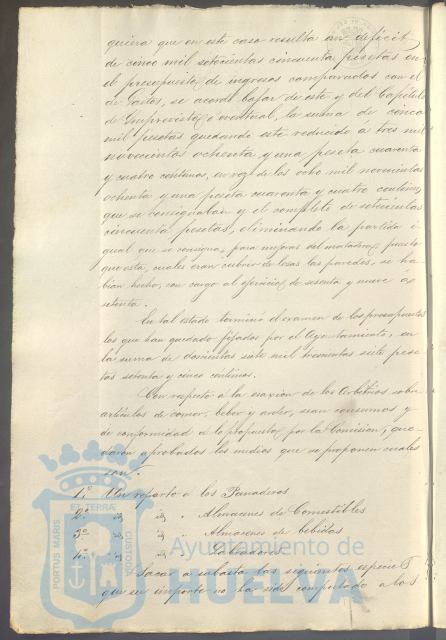 quiera que en este caso resulta un deficit
de cinco mil setecientas cincuenta pesetas en
el presupuesto de ingresos comparados con el
de Gastos, se acordó bajar de este y del Capitulo
de Imprevistos ó eventual, la suma de cinco
mil pesetas quedando este reducido a tres mil
novecientas ochenta y una peseta cuarenta
y cuatro centimos, en vez de las ocho mil novecientas
ochenta y una peseta cuarenta y cuatro centimos,
que se consignaban y el completo de setecientas
cincuenta pesetas, eliminando la partida i
gual que se consigna para mejoras del matadero, puesto
que esta, cuales eran cubrir de losas las paredes, se ha
bian hecho, con cargo al ejercicio de sesenta y nueve ás
setenta.
En tal estado terminó el examen de los presupuestos
los que han quedado fijados por el Ayuntamiento, en
la suma de doscientas siete mil trescientas siete pese
tas setenta y cinco centimos.
Con respecto á la exaxion de los Arbitrios sobre
articulos de comer, beber y arder, sean consumos y
de conformidad a lo propuesto por la Comision, que-
daron aprobados los medios que se proponen cuales
son.
1.º Un reparto á los Panaderos
2.º id id Almacenes de Comestibles
3.º id id Almacenes de bebidas
4.º id id
Sacar a subasta las siguientes especies
que su importe no ha sido computado a los
PORTUS MARIS
ET TERRÆ
CUSTODIA
Ayuntamiento de
HUELVA